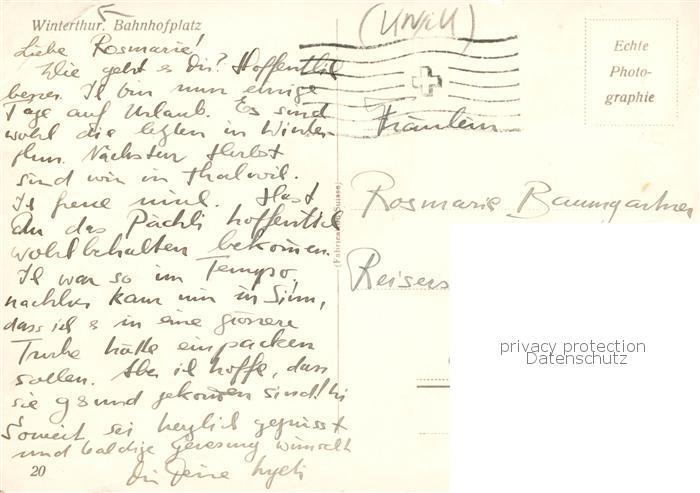 Winterthur. Bahnhofplatz
Liebe Rosmarie!
Wie geht es Dir? Hoffentlich
besser. Ich bin nun einige
Tage auf Urlaub. Es sind
wohl die letzten in Winter-
thur. Nächsten Herbst
sind wir in Thalwil.
Ich freue mich. Hast
Du das Päckli hoffentlich
wohlbehalten bekommen.
Ich war so im Tempo,
nachher kam mir in Sinn,
dass ich es in eine grössere
Truke hätte einpacken
sollen. Aber ich hoffe, dass
sie gsund gekommen sind!
Soweit sei herzlich gegrüsst
und baldige Genesung wünscht
Dir Deine
20
(Unfall)
Echte
Photo-
graphie
Fräulein
Rosmarie Baumgartner
Reisers
privacy protection
Datenschutz